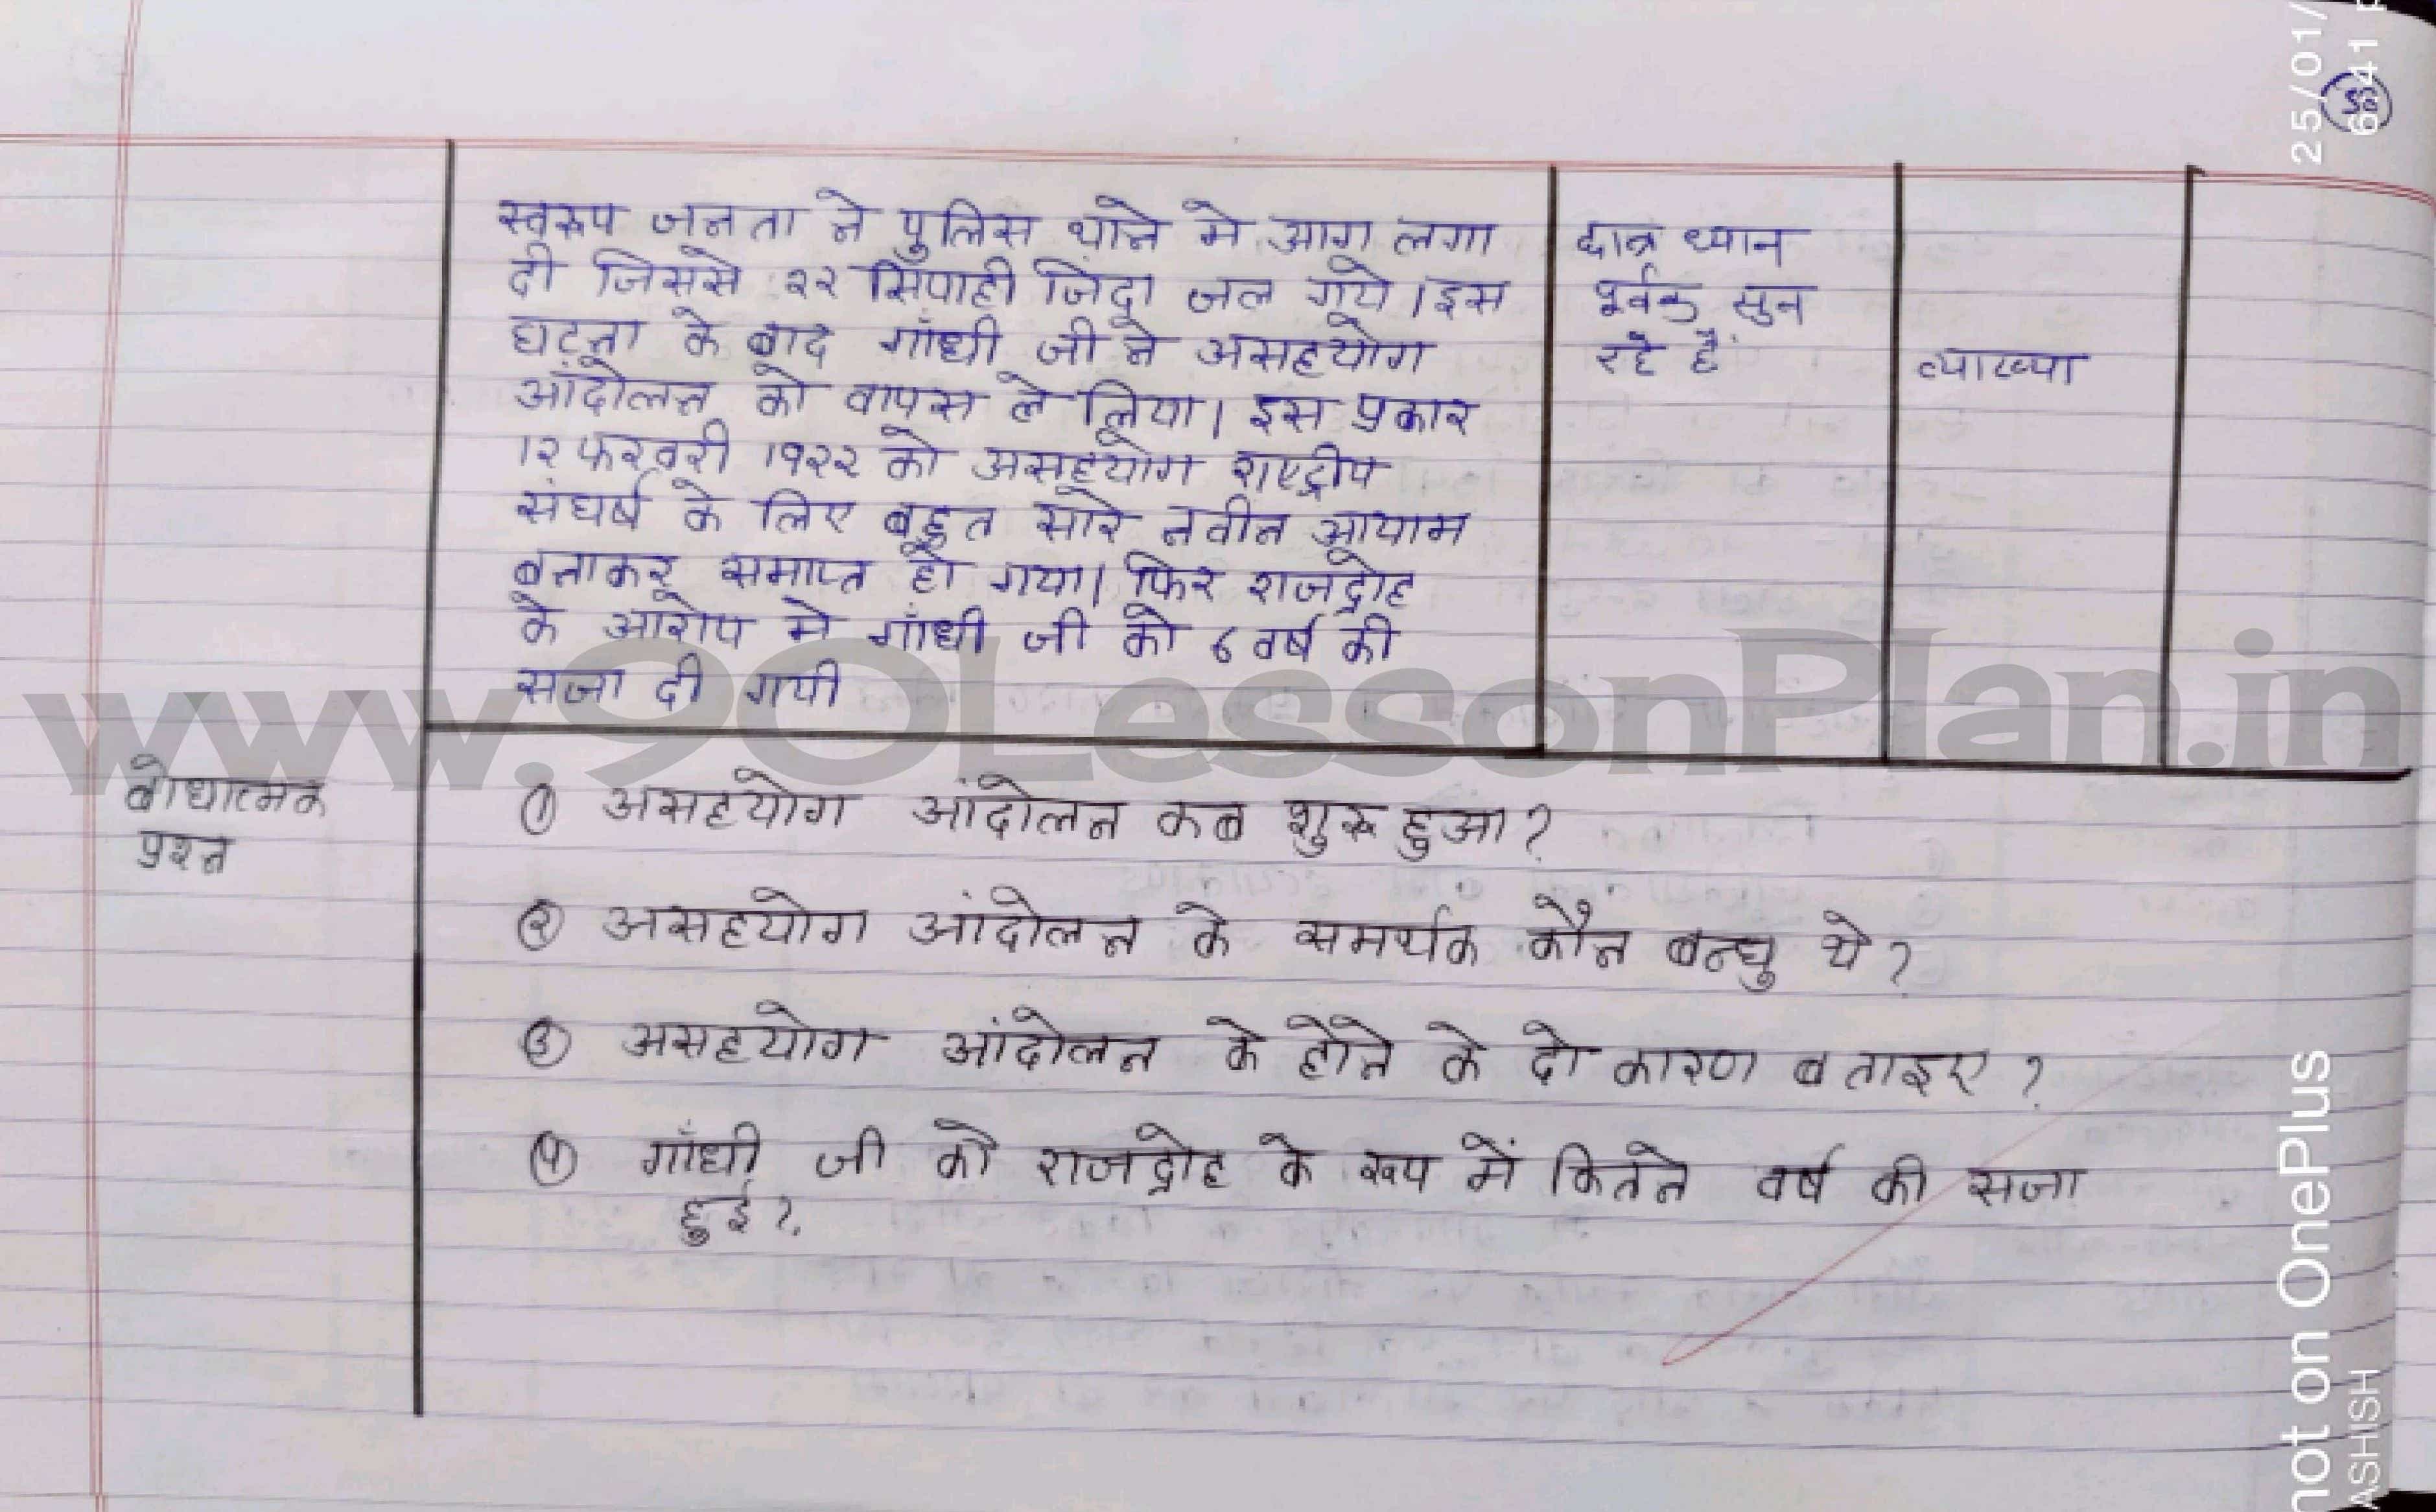 स्वरूप जनता ने पुलिस थाने मे आग लगा
दी जिससे २२ सिपाही जिंदा जल गये । इस
घटना के बाद गाँधी जी ने असहयोग
आंदोलन को वापस ले लिया। इस प्रकार
१२ फरवरी १९२२ को असहयोग राष्ट्रीय
संघर्ष के लिए बहुत सारे नवीन आयाम
बनाकर समाप्त हो गया। फिर राजद्रोह
के आरोप मे गाँधी जी को ६ वर्ष की
सजा दी गयी
छात्र ध्यान
पूर्वक सुन
रहे हैं
व्याख्या
बोधात्मक
प्रश्न
① असहयोग आंदोलन कब शुरू हुआ?
② असहयोग आंदोलन के समर्थक कौन बन्धु थे?
③ असहयोग आंदोलन के होने के दो कारण बताइए ?
④ गाँधी जी को राजद्रोह के रूप में कितने वर्ष की सजा
हुई?
www.90LessonPlan.in
25/01/
not on OnePlus
ASHISH